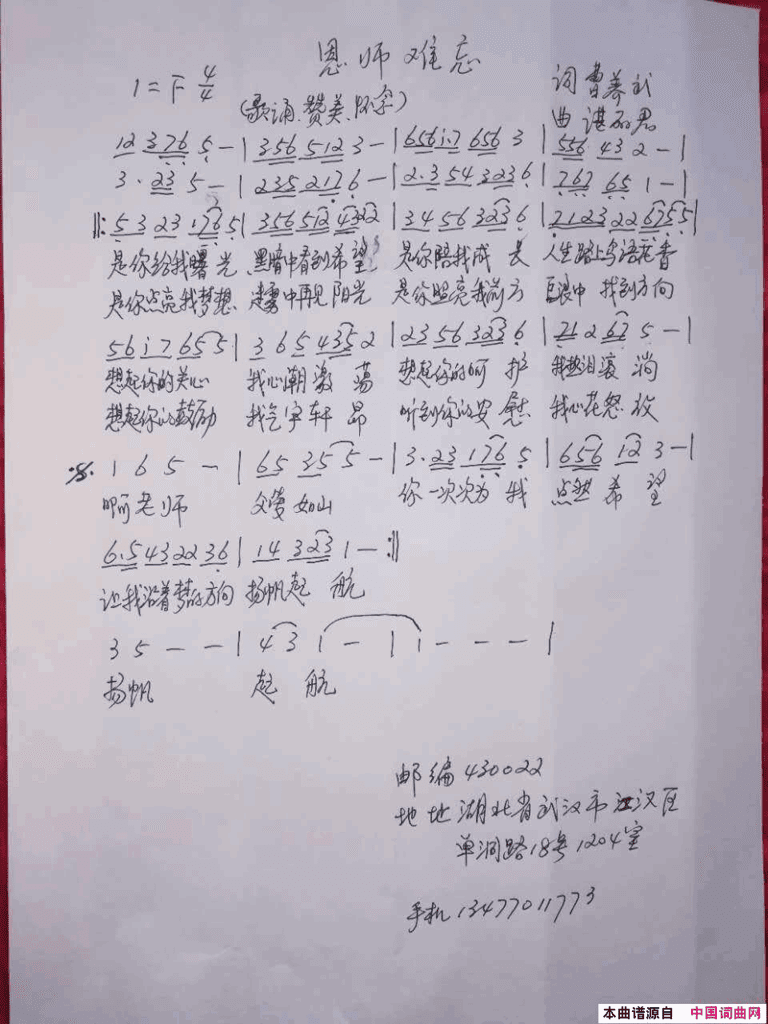 恩师难忘
1=F 4/4
(歌诵、赞美、怀念)
词 曹养武
曲 谌
12 376 5 - | 356 512 3 - | 656i·7 656 3 | 556 43 2 - |
3· 23 5 - | 235 2176 - | 2·3 54 323 6 | 767 65 1 - |
‖: 5 3 23 176 5 | 356 512 4322 | 34 56 323 6 | 2123 22 6755 |
是你给我曙光 黑暗中看到希望 是你陪我成长 人生路上鸟语花香
是你点亮我梦想 中再见阳光 是你照亮我前方 巨浪中 找到方向
56 i·7 655 | 3 65 435 2 | 23 56 323 6 | 21 2 67 5 - |
想起你的关心 我心潮激荡 想起你的呵护 我热泪滚淌
想起你的鼓励 我气宇轩昂 听到你的安慰 我心花怒放
1 6 5 - | 65 35 5 - | 3·23 176 5 | 656 12 3 - |
啊老师 父爱如山 你一次次为我 点燃希望
6·5 43 22 36 | 14 323 1 - :‖
让我沿着梦的方向 扬帆起航
3 5 - - | 43 1 - | 1 - - - |
扬帆 起航
邮编 430022
地址 湖北省武汉市江汉区
单洞路18号1204室
手机 13477011773
本曲谱源自 中国词曲网